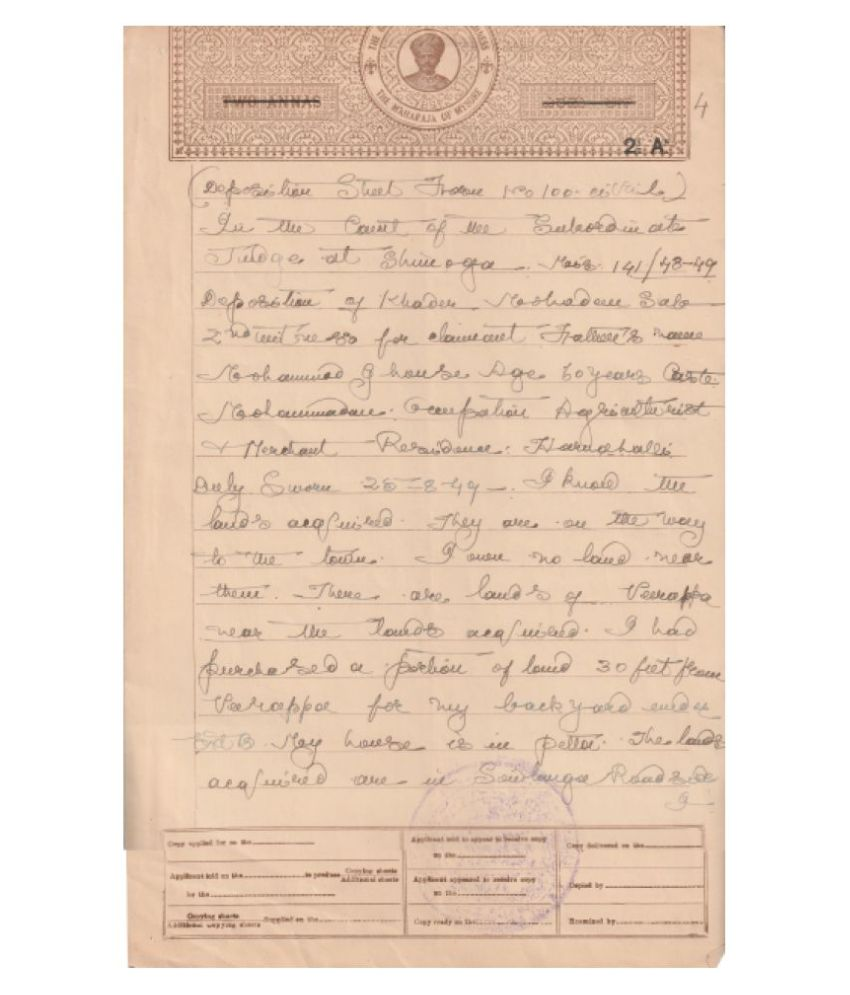 THE MAHARAJA OF MYSORE
TWO ANNAS
2 A
4
(Deposition Sheet From No 100- Civil)
In the Court of the Subordinate
Judge at Shimoga. Mis. 141/48-49
Deposition of Khader Mohadeen Sab
2nd witness for claimant Father's name
Mohammad Ghouse Age 50 years Caste
Mohammadan. Occupation Agriculturist
& Merchant Residence: Harnahalli
Duly Sworn 25-8-49. I know the
lands acquired. They are on the way
to the town. I own no land near
them. There are lands of Veerappa
near the lands acquired. I had
purchased a portion of land 30 feet from
Veerappa for my backyard under
Ext B. My house is in petta. The lands
acquired are in Sowlanga Road side
Copy applied for on the
Applicant told on the to produce Copying sheets
Additional sheets
by the
Copying sheets
Additional copying sheets Supplied on the
Applicant told to appear to receive copy
on the
Applicant appeared to receive copy
on the
Copy ready on the
Copy delivered on the
Copied by
Examined by